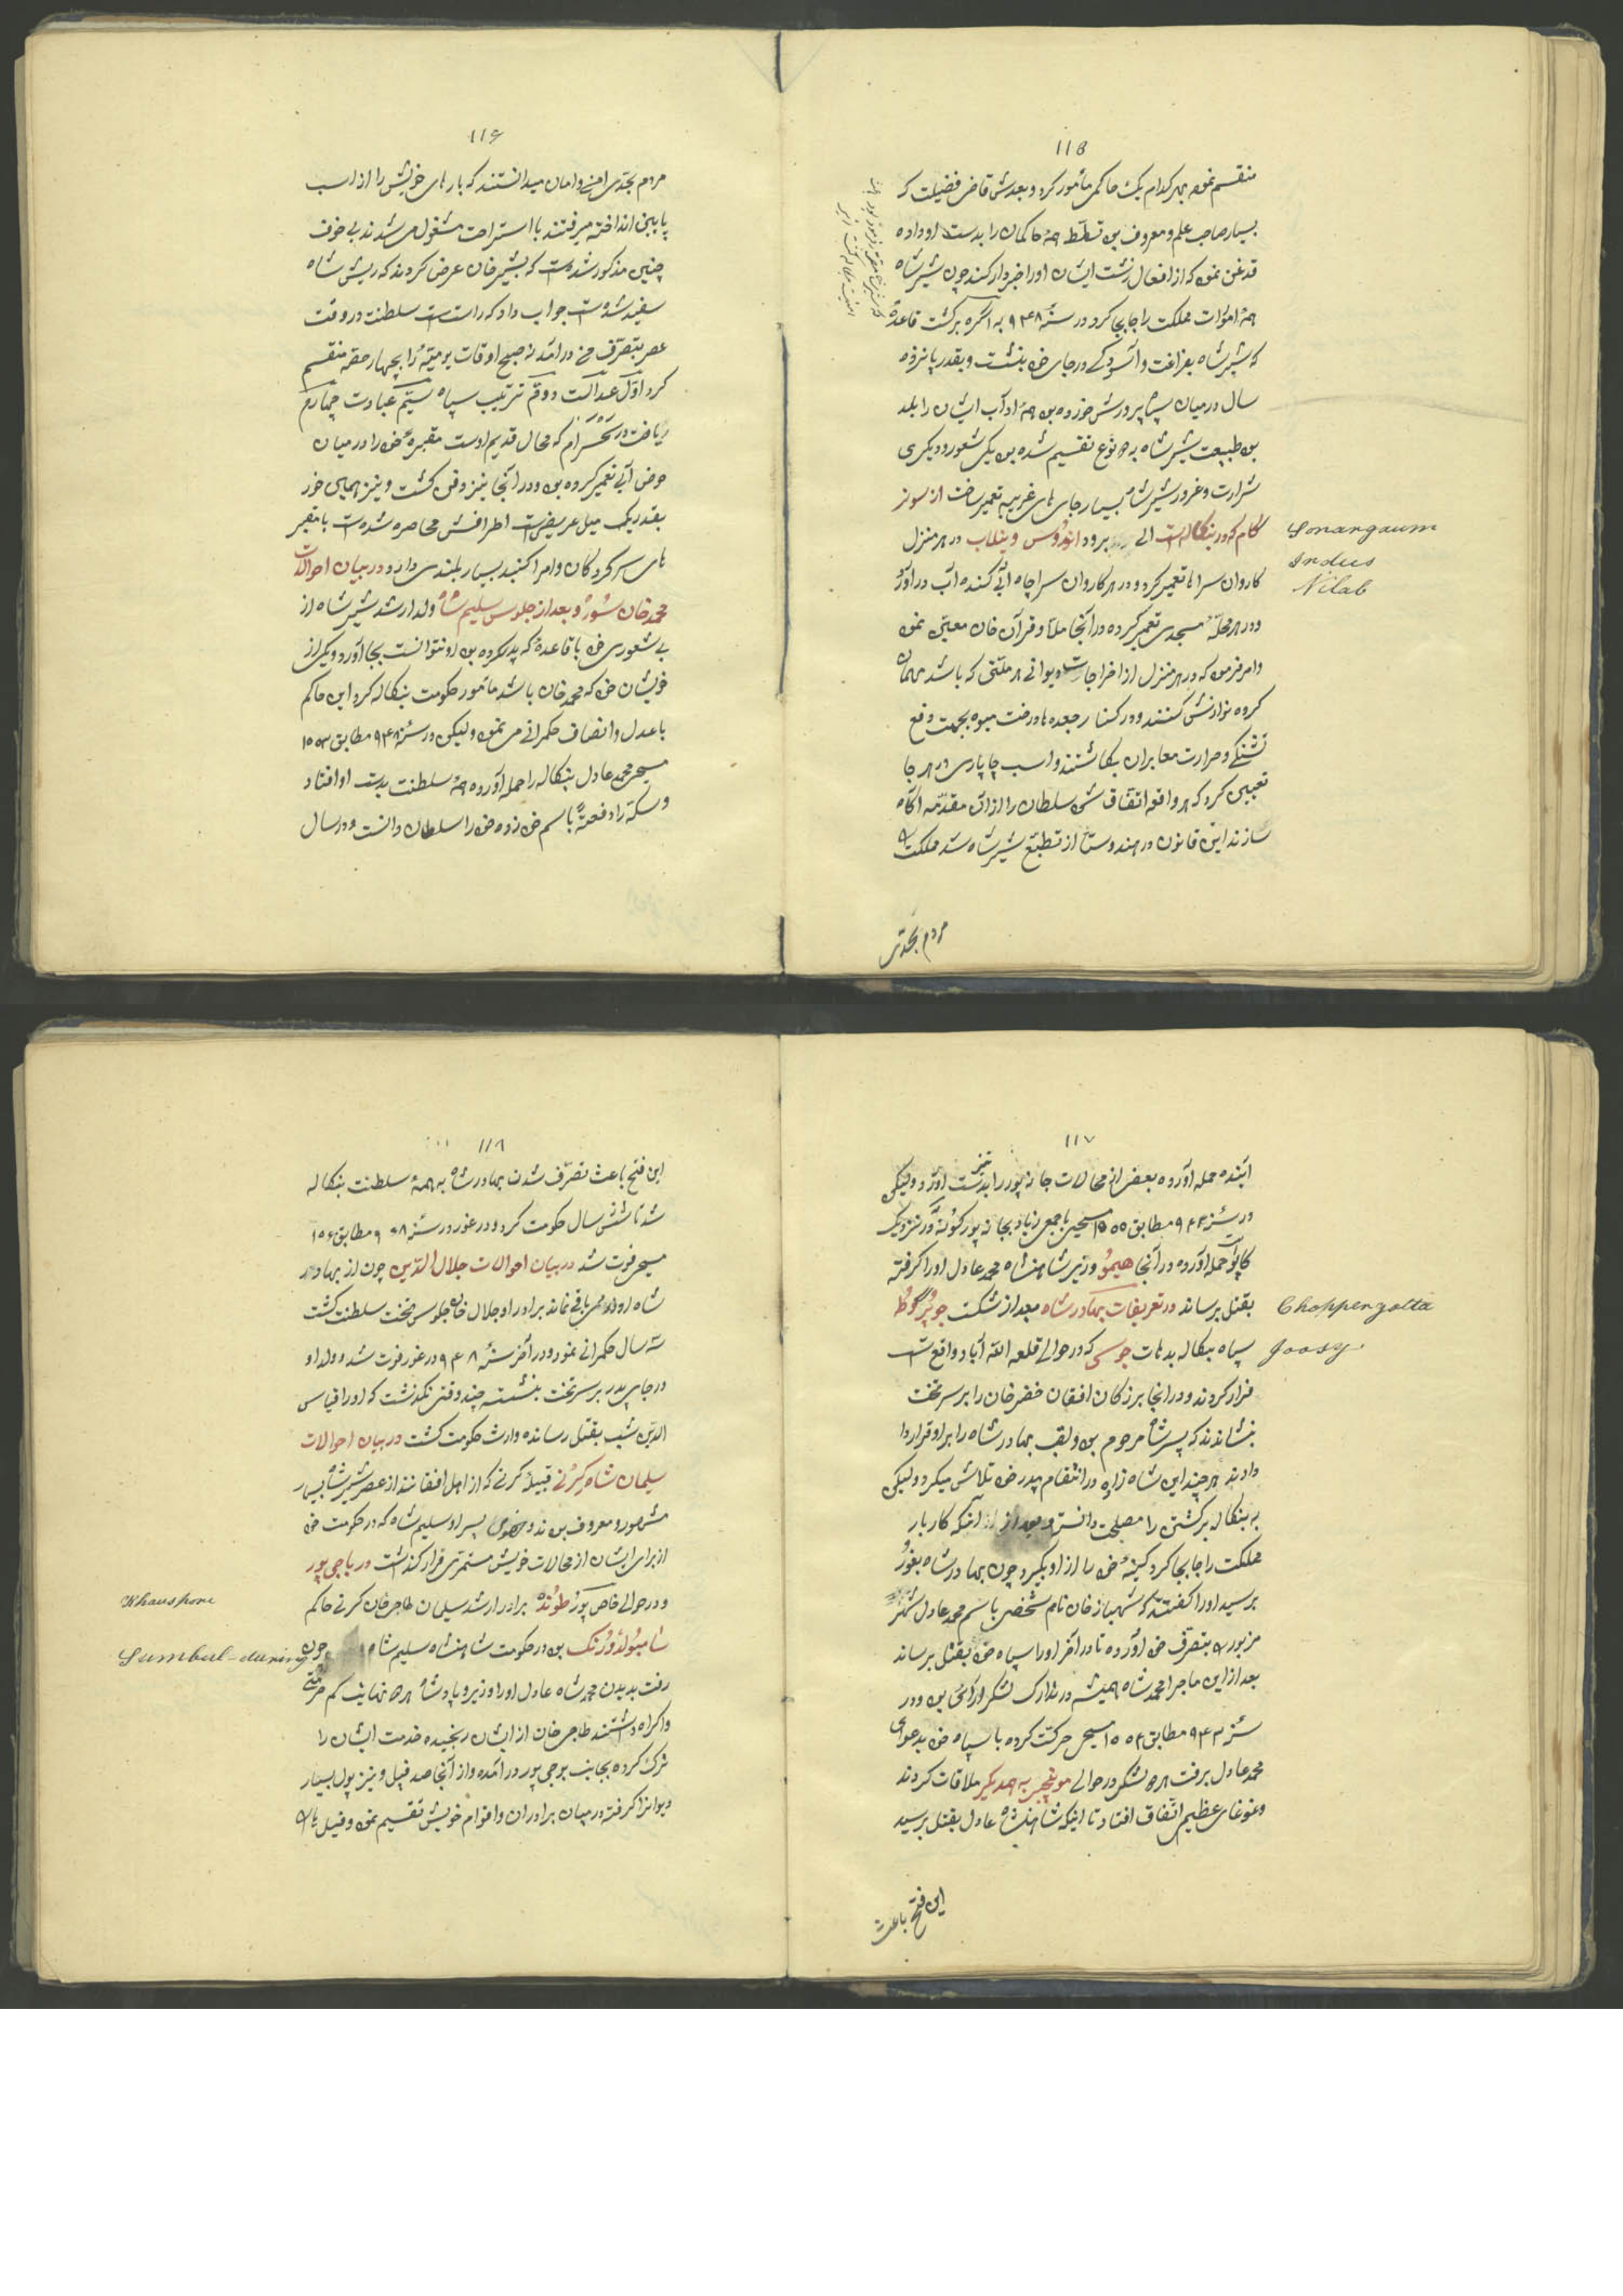 ۱۱۵
منقسم نموده بهر کدام یک حاکمی مأمور کرد و بعدش قاضی فضیلت که
بسیار صاحب علم و معروف بوده تسلّط همهٔ حاکمان را بدست او داده
قدغن نموده که از افعال زشت ایشان او را خبردار کند چون شیر شاه
همهٔ امورات مملکت را جابجا کرد در سنهٔ ۹۴۸ به اگره برگشت قاعدهٔ
که شیر شاه بفراغت و آسودگی در جای خود بنشست و بقدر پانزده
سال در میان سپاه پرورش خورده بود همهٔ اداب ایشان را بلد
بوده طبیعت شیر شاه به دو نوع تقسیم شده بود یکی شعور و دیگری
شرارت و غرور شیر شاه بسیار جای های غریبه تعمیر ساخت از سونر
گام که در بنگاله است الی برود اندوس و نیلاب در هر منزل
Sonargaum
Indus
Nilab
کاروان سراها تعمیر کرد و در هر کاروان سرا چاه آبی کنده آب در آورد
و در هر محلّه مسجدی تعمیر کرده در آنجا ملا و قرآن خوان معیّن نموده
و امر فرموده که در هر منزل از اخراجات دیوانی هر ملّتی که باشد مهمان
کرده نوازش کنند و در کنار جعده ها درخت میوه بجهت دفع
تشنگی و حرارت معابران بکاشتند و اسب چاپاری در هر جا
تعیین کرد که هر واقعه اتفاق شود سلطان را از ان مقدّمه اگاه
سازند این قانون در هندوستان از تطبّع شیر شاه شد مملکت
مردم بجدّی
۱۱۶
مردم بجدّی امن و امان میدانستند که بارهای خویش را از اسب
پایین انداخته میرفتند با استراحت مشغول می شدند بی خوف
چنین مذکور شده است که بشیر خان عرض کردند که ریش شاه
سفید شده است جواب داد که راست است سلطنت در وقت
عصر بتصرّف من در امد نه صبح اوقات یومیّه را بچهار حصه منقسم
کرد اوّل عدالت دوّم ترتیب سپاه سیّم عبادت چهارم
ریاضت در سحسرام که محال قدیم اوست مقبرهٔ خود را در میان
حوض آبی تعمیر کرده بود و در آنجا نیز دفن گشت و نیز همین حوض
بقدر یک میل عریض است اطرافش محاصره شده است با مقبر
های سرکردگان و امرا گنبد بسیار بلندی دارد در بیان احوالات
محمد خان سور و بعد از جلوس سلیم شاه ولد ارشد شیر شاه از
بی شعوری خود با قاعدهٔ که پدر کرده بود او نتوانست بجا آورد و یکی از
خویشان خود که محمد خان باشد مأمور حکومت بنگاله کرد این حاکم
با عدل و انصاف حکمرانی می نمود و لیکن در سنهٔ ۹۴۸ مطابق ۱۵۵۳
مسیحی محمد عادل بنگاله را حمله آورده همهٔ سلطنت بدست او افتاد
و سکه را دفعتهً باسم خود زده خود را سلطان دانست و در سال
۱۱۷
آینده حمله آورده بعضی از محالات جانپور را نیز بدست آورد و لیکن
در سنهٔ ۹۴۳ مطابق ۱۵۵۵ مسیحی با جمعی زیاد بجانپور کونه در نزدیک
کالپی حمله آورده در آنجا هیمو وزیر شاهنشاه محمد عادل او را گرفته
بقتل برساند در تعریفات بهادر شاه بعد از شکست چوپرگوطا
Choppergotta
سپاه بنگاله بدهات جوسی که در حوالی قلعه الله آباد واقع است
Joosy
فرار کردند و در انجا بزرگان افغان خضر خان را بر سر تخت
بنشاندند که پسر شاه مرحوم بود و لقب بهادر شاه را بر او قرار دا
دادند هر چند این شاه زاده در انتقام پدر خود تلاش میکرد و لیکن
به بنگاله برگشتن را مصلحت دانسته بعد از آنکه کاربار
مملکت را جابجا کرد کینهٔ خود را از او بگیرد چون بهادر شاه بغور
برسید او را گفتند که شهباز خان نام شخصی باسم محمد عادل شهر
مزبور را بتصرف خود آورده تا در آخر او را سپاه خود بقتل برساند
بعد از این ماجرا محمد شاه همیشه در تدارک لشکر آرائی بود و در
سنهٔ ۹۴۳ مطابق ۱۵۵۶ مسیحی حرکت کرده با سپاه خود بدعوای
محمد عادل برفت هر دو لشکر در حوالی مونجیر به همدیگر ملاقات کردند
و غوغای عظیم اتفاق افتاد تا اینکه شاهنشاه عادل بقتل برسید
این فتح باعث
۱۱۸
این فتح باعث تصرّف شدن بهادر شاه به همهٔ سلطنت بنگاله
شد تا شش سال حکومت کرد و در غور در سنهٔ ۹۶۸ مطابق ۱۵۶
مسیحی فوت شد در بیان احوالات جلال الدّین چون از بهادر
شاه اولادی باقی نماند برادر او جلال خان جلوس تخت سلطنت گشت
سه سال حکمرانی نمود و در آخر سنهٔ ۹۴۸ در غور فوت شد و ولد او
در جای پدر بر سر تخت بنشسته چند وقتی نگذشت که او را قیاس
الدّین شبب بقتل رسانده وارث حکومت گشت در بیان احوالات
سلیمان شاه کرنی قبیلهٔ کرنی که از اهل افغانند از عصر شیر شاه بسیار
مشهور و معروف بودند و خصوصاً پسر او سلیم شاه که در حکومت خود
از برای ایشان از محالات خویش مستمری قرار گذاشت در باجی پور
و در حوالی خاص پور طونده برادر ارشد سلیمان طاجی خان کرنی حاکم
Khauspore
شامبولدورنک بود در حکومت شاهنشاه سلیم شاه چون
Sumbul-durung
رفت بدیدن محمد شاه عادل او را و وزیر و پادشاه هر دو نهایت کم حرمتی
و اکراه داشتند طاجی خان از ایشان رنجیده خدمت ایشان را
ترک کرده بجانب بوجی پور در آمده و از آنجا صد فیل و نیز پول بسیار
دیوانرا گرفته در میان برادران و اقوام خویش تقسیم نموده و فیل ها را